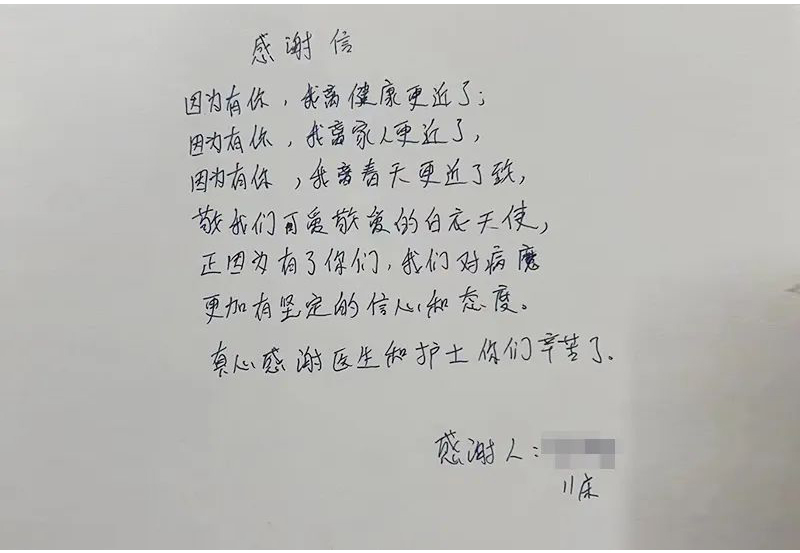 感谢信
因为有你，我离健康更近了；
因为有你，我离家人更近了，
因为有你，我离春天更近了致，
敬我们可爱敬爱的白衣天使，
正因为有了你们，我们对病魔
更加有坚定的信心和态度。
真心感谢医生和护士你们辛苦了。
感谢人：
11床